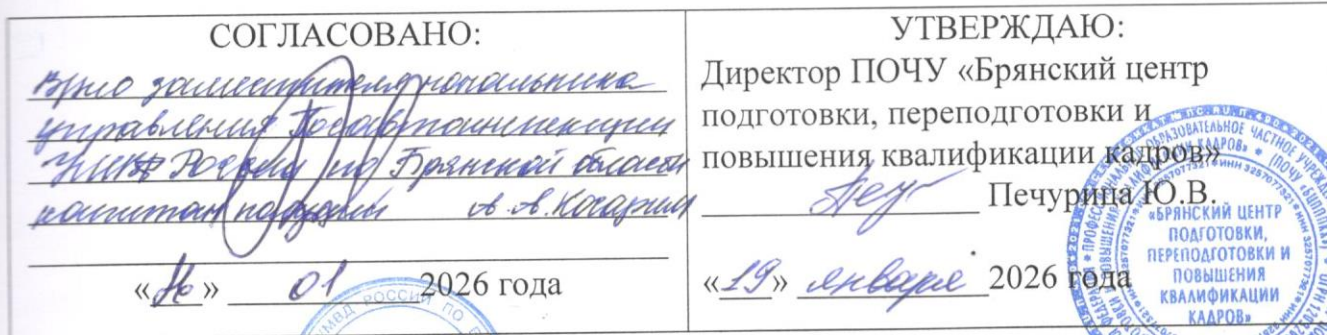 СОГЛАСОВАНО:
Врио заместителя начальника
управления Госавтоинспекции
УМВД России по Брянской области
капитан полиции А.А.
« » 01 2026 года
УМВД РОССИИ ПО
УТВЕРЖДАЮ:
Директор ПОЧУ «Брянский центр
подготовки, переподготовки и
повышения квалификации кадров»
Печурица Ю.В.
«19» января 2026 года
«БРЯНСКИЙ ЦЕНТР
ПОДГОТОВКИ,
ПЕРЕПОДГОТОВКИ И
ПОВЫШЕНИЯ
КВАЛИФИКАЦИИ
КАДРОВ»